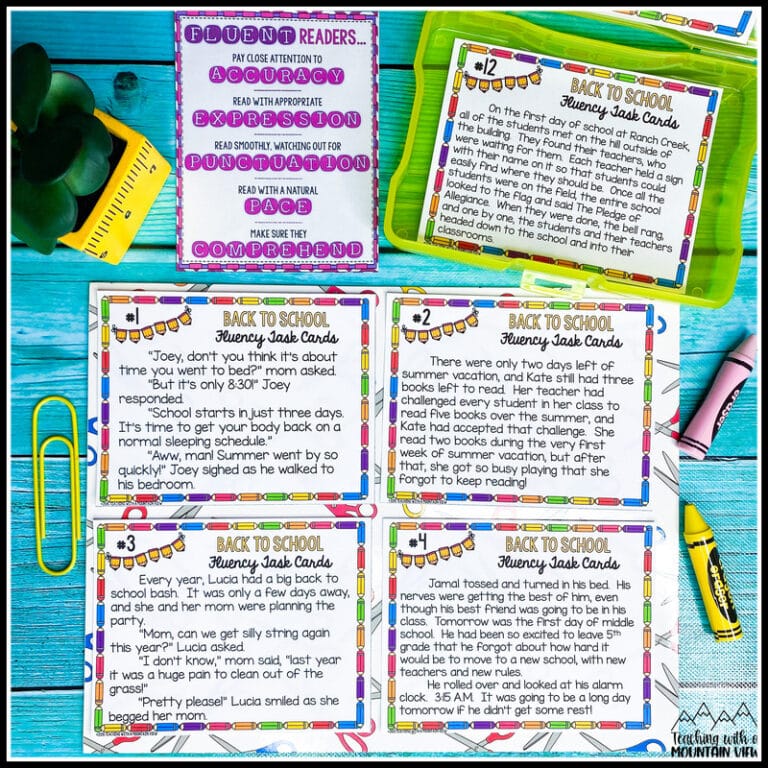 FLUENT READERS...
PAY CLOSE ATTENTION TO
ACCURACY
READ WITH APPROPRIATE
EXPRESSION
READ SMOOTHLY, WATCHING OUT FOR
PUNCTUATION
READ WITH A NATURAL
PACE
MAKE SURE THEY
COMPREHEND
#12
BACK TO SCHOOL
Fluency Task Cards
On the first day of school at Ranch Creek,
all of the students met on the hill outside of
the building. They found their teachers, who
were waiting for them. Each teacher held a sign
with their name on it so that students could
easily find where they should be. Once all the
students were on the field, the entire school
looked to the flag and said The Pledge of
Allegiance. When they were done, the bell rang,
and one by one, the students and their teachers
headed down to the school and into their
classrooms.
#1
BACK TO SCHOOL
Fluency Task Cards
"Joey, don't you think it's about
time you went to bed?" mom asked.
"But it's only 8:30!" Joey
responded.
"School starts in just three days.
It's time to get your body back on a
normal sleeping schedule."
"Aww, man! Summer went by so
quickly!" Joey sighed as he walked to
his bedroom.
#2
BACK TO SCHOOL
Fluency Task Cards
There were only two days left of
summer vacation, and Kate still had three
books left to read. Her teacher had
challenged every student in her class to
read five books over the summer, and
Kate had accepted that challenge. She
read two books during the very first
week of summer vacation, but after
that, she got so busy playing that she
forgot to keep reading!
#3
BACK TO SCHOOL
Fluency Task Cards
Every year, Lucia had a big back to
school bash. It was only a few days away,
and she and her mom were planning the
party.
"Mom, can we get silly string again
this year?" Lucia asked.
"I don't know," mom said, "last year
it was a huge pain to clean out of the
grass!"
"Pretty please!" Lucia smiled as she
begged her mom.
#4
BACK TO SCHOOL
Fluency Task Cards
Jamal tossed and turned in his bed. His
nerves were getting the best of him, even
though his best friend was going to be in his
class. Tomorrow was the first day of middle
school. He had been so excited to leave 5th
grade that he forgot about how hard it
would be to move to a new school, with new
teachers and new rules.
He rolled over and looked at his alarm
clock. 3:15 A.M. It was going to be a long day
tomorrow if he didn't get some rest!
eraser
eraser
Teaching with a
MOUNTAIN VIEW